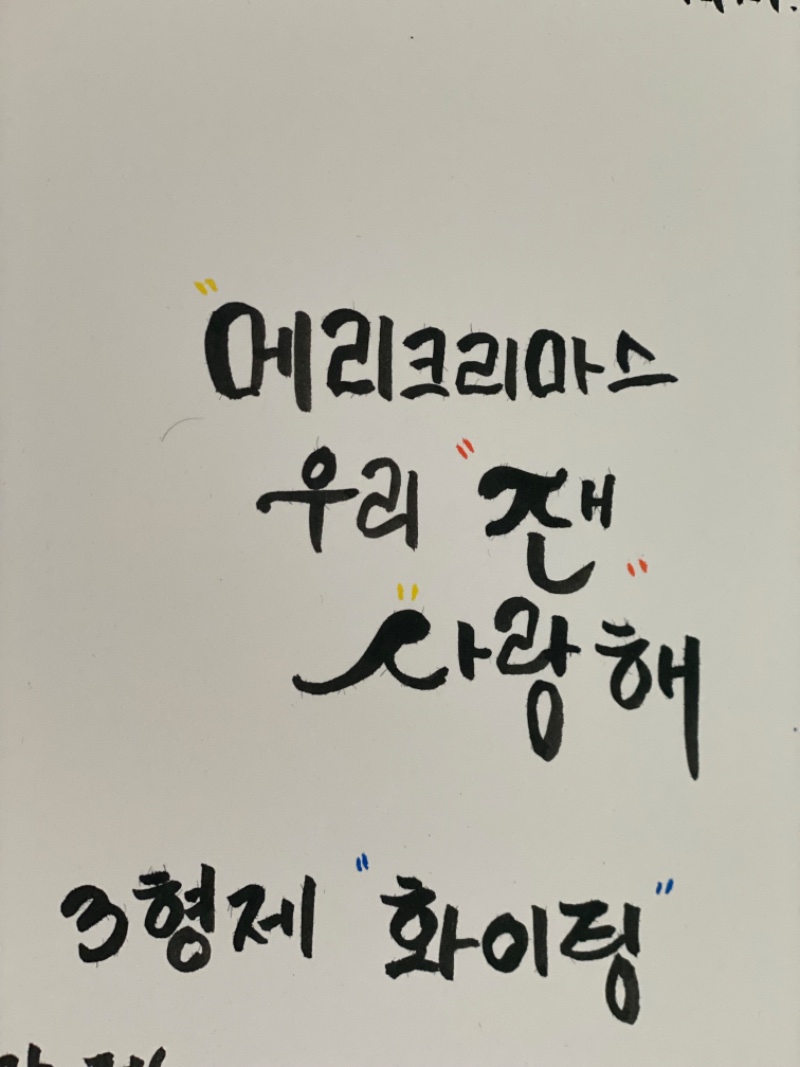 "메리크리마스
우리 "잰"
"사랑해
3형제 "화이팅"